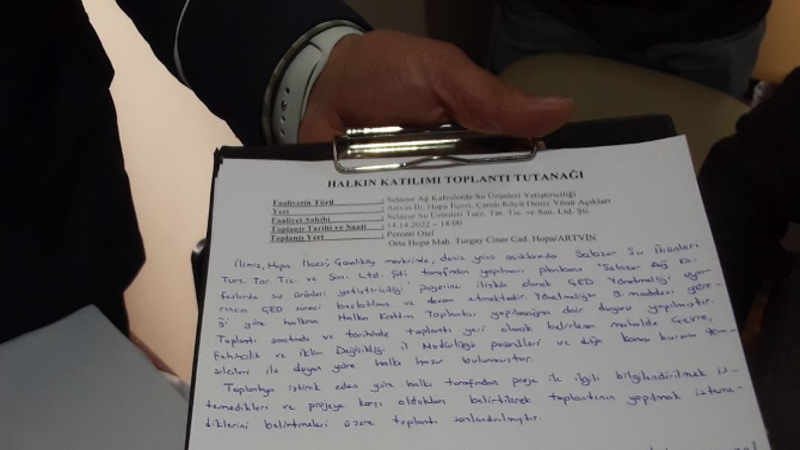 HALKIN KATILIMI TOPLANTI TUTANAĞI
Faaliyetin Türü : Selazur Ağ Kafeslerde Su Ürünleri Yetiştiriciliği
Yeri : Artvin İli, Hopa İlçesi, Çamlı Köyü Deniz Yönü Açıkları
Faaliyet Sahibi : Selazur Su Ürünleri Turz. Tar. Tic. ve San. Ltd. Şti.
Toplantı Tarihi ve Saati : 14.14.2022 – 14:00
Toplantı Yeri : Peronti Otel
Orta Hopa Mah. Turgay Ciner Cad. Hopa/ARTVİN
İlimiz, Hopa İlçesi, mevkiinde, deniz yönü açıklarında Selazur Su Ürünleri
Turz. Tar. Tic. ve San. Ltd. Şti. tarafından yapılması planlanan "Selazur Ağ Ka-
feslerde su ürünleri yetiştiriciliği" projesine ilişkin olarak ÇED Yönetmeliği uya-
rınca ÇED süreci başlatılmış ve devam etmektedir. Yönetmeliğin 9. maddesi gere-
ği yöre halkına Halkın Katılım Toplantısı yapılacağına dair duyuru yapılmıştır.
Toplantı saatinde ve tarihinde toplantı yeri olarak belirlenen mahalde Çevre,
Şehircilik ve İklim Değişikliği İl Müdürlüğü personelleri ve diğer kamu kurum tem-
silcileri ile duyan yöre halkı hazır bulunmuştur.
Toplantıya iştirak eden yöre halkı tarafından proje ile ilgili bilgilendirilmek is-
temedikleri ve projeye karşı oldukları belirtilerek toplantının yapılmak isteme-
diklerini belirtmeleri üzere toplantı sonlandırılmıştır.